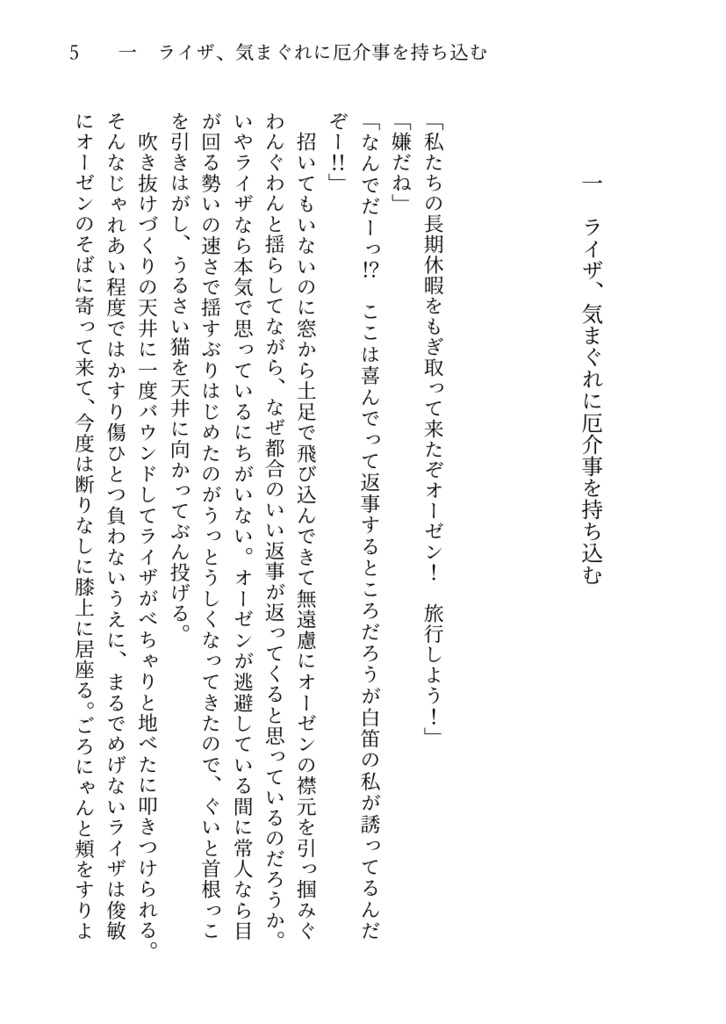 5　一　ライザ、気まぐれに厄介事を持ち込む
一　ライザ、気まぐれに厄介事を持ち込む
「私たちの長期休暇をもぎ取って来たぞオーゼン！　旅行しよう！」
「嫌だね」
「なんでだーっ!?　ここは喜んでって返事するところだろうが白笛の私が誘ってるんだ
ぞー!!」
　招いてもいないのに窓から土足で飛び込んできて無遠慮にオーゼンの襟元を引っ掴みぐ
わんぐわんと揺らしてながら、なぜ都合のいい返事が返ってくると思っているのだろうか。
いやライザなら本気で思っているにちがいない。オーゼンが逃避している間に常人なら目
が回る勢いの速さで揺すぶりはじめたのがうっとうしくなってきたので、ぐいと首根っこ
を引きはがし、うるさい猫を天井に向かってぶん投げる。
　吹き抜けづくりの天井に一度バウンドしてライザがべちゃりと地べたに叩きつけられる。
そんなじゃれあい程度ではかすり傷ひとつ負わないうえに、まるでめげないライザは俊敏
にオーゼンのそばに寄って来て、今度は断りなしに膝上に居座る。ごろにゃんと頬をすりよ